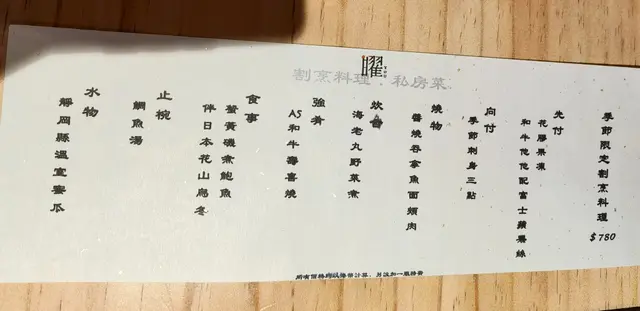 曜
割烹料理．私房菜
季節限定割烹料理
$780
先付
花膠果凍
和牛他他配富士蘋果絲
向付
季節刺身三點
燒物
醬燒吞拿魚面頰肉
炊合
海老丸野菜煮
強肴
A5和牛壽喜燒
食事
蟹黃磯煮鮑魚
伴日本花山烏冬
止椀
鯛魚湯
水物
靜岡縣溫室蜜瓜
所有價格均以港幣計算，另設加一服務費